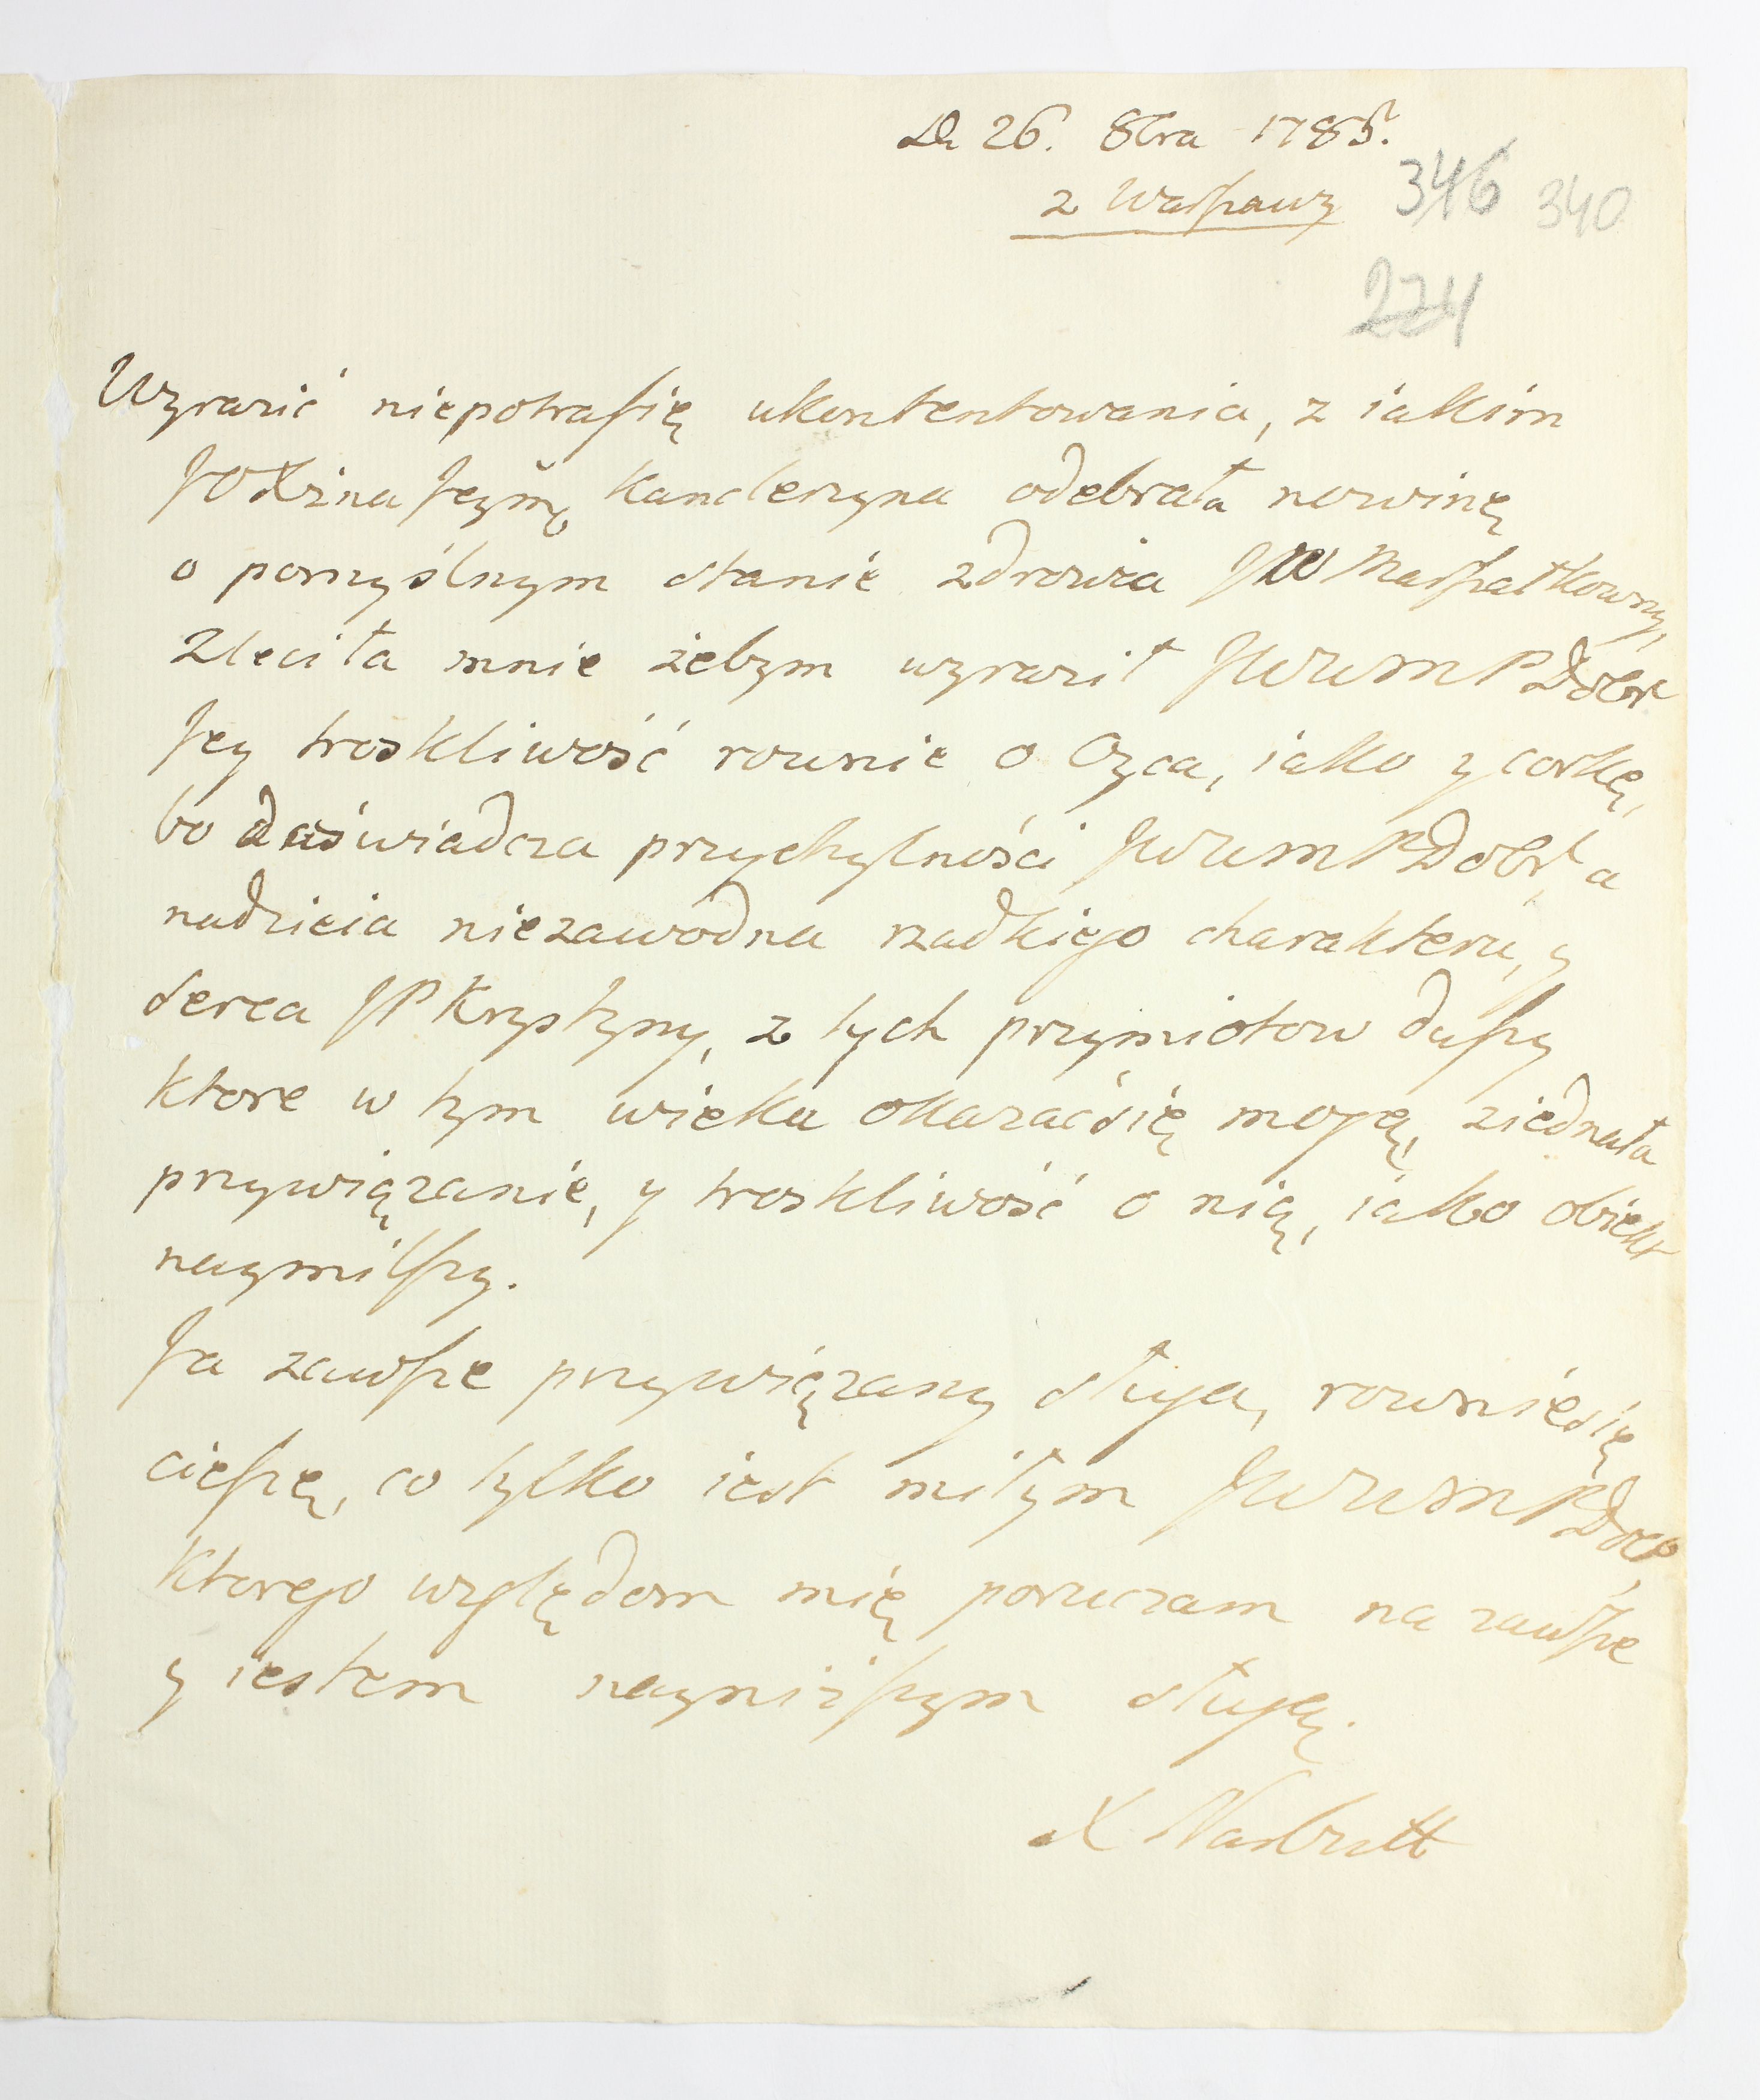 D. 26. 8bra 1785.
z Warszawy
346 340
274
Wyrazić niepotrafię ukontentowania, z iakim
JOXżna Jeymć Kanclerzyna odebrała nowinę
o pomyślnym stanie zdrowia JW Marszałkowny,
Zleciła mnie żebym wyraził JWWMPDobr
Jey troskliwość rownie o Oyca, iako y corkę,
bo doświadcza przychylności JWWMPDobr, a
nadzieia niezawodna rzadkiego charakteru, y
serca JP Krystyny, z tych przymiotow duszy
ktore w tym wieku okazać się mogą, ziednała
przywiązanie, y troskliwość o nią, iako obiekt
naymilszy.
Ja zawsze przywiązany sługa, rownie się
cieszę, co tylko iest miłym JWWMPDob,
ktorego względom mię poruczam na zawsze
y iestem nayniższym sługą.
X Narbutt